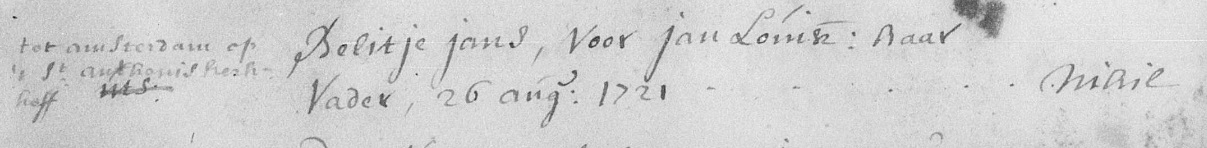 tot amsterdam op
't St anthonis kerk-
hoff
Belitje jans, Voor jan Louisz: haar
Vader, 26 augs: 1721 - - - - - Nihil